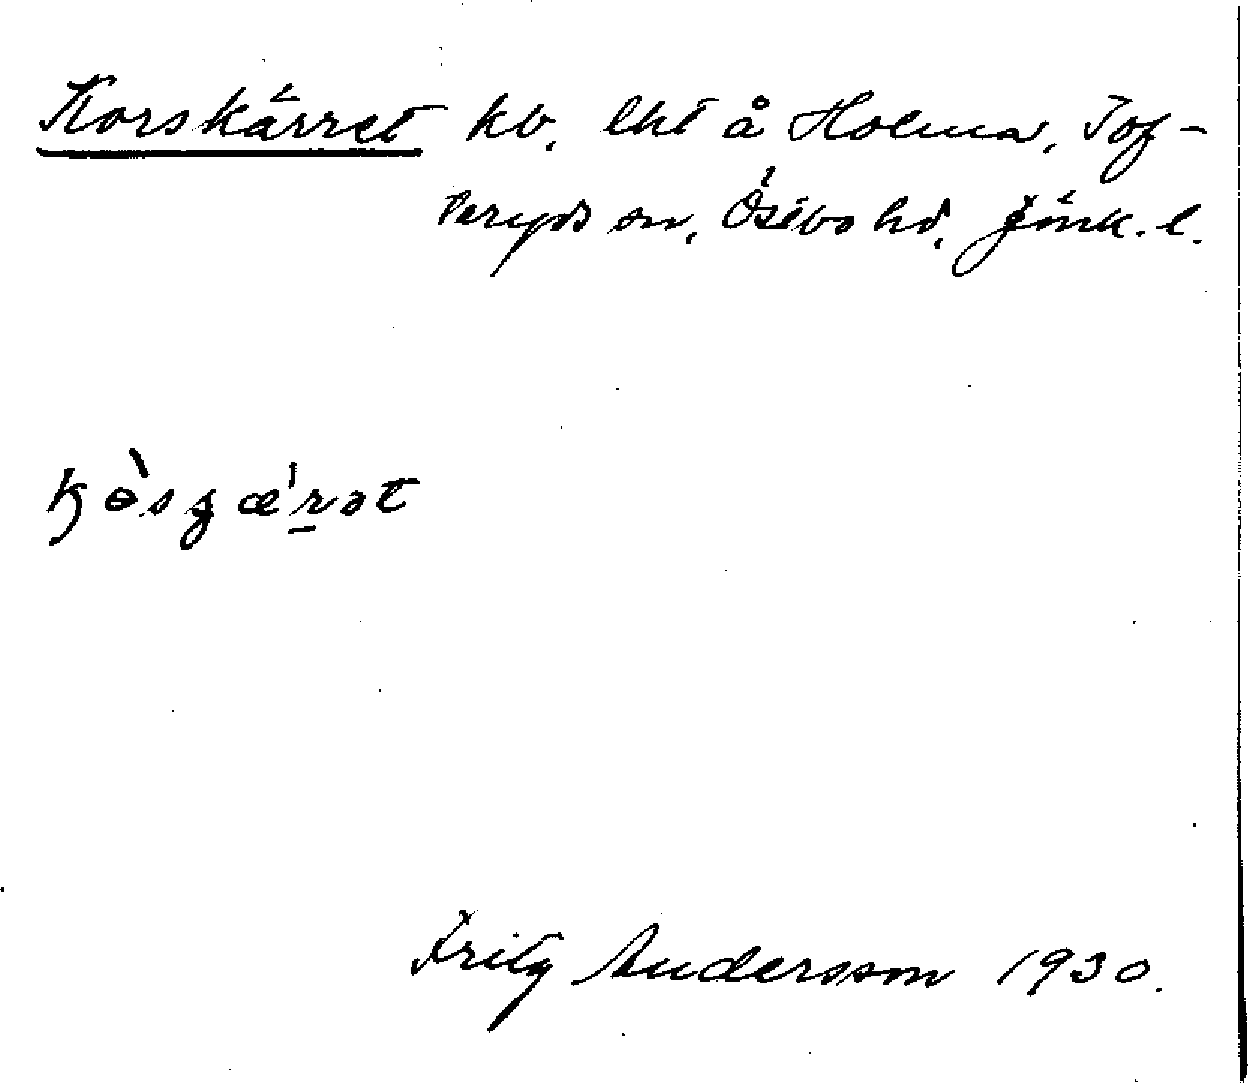 Korskärret kv. lht å Holma, Tof-
teryds sn, Östbo hd, Jönk. l.
kɵ̀sgæ'rət
Fritz Andersson 1930.